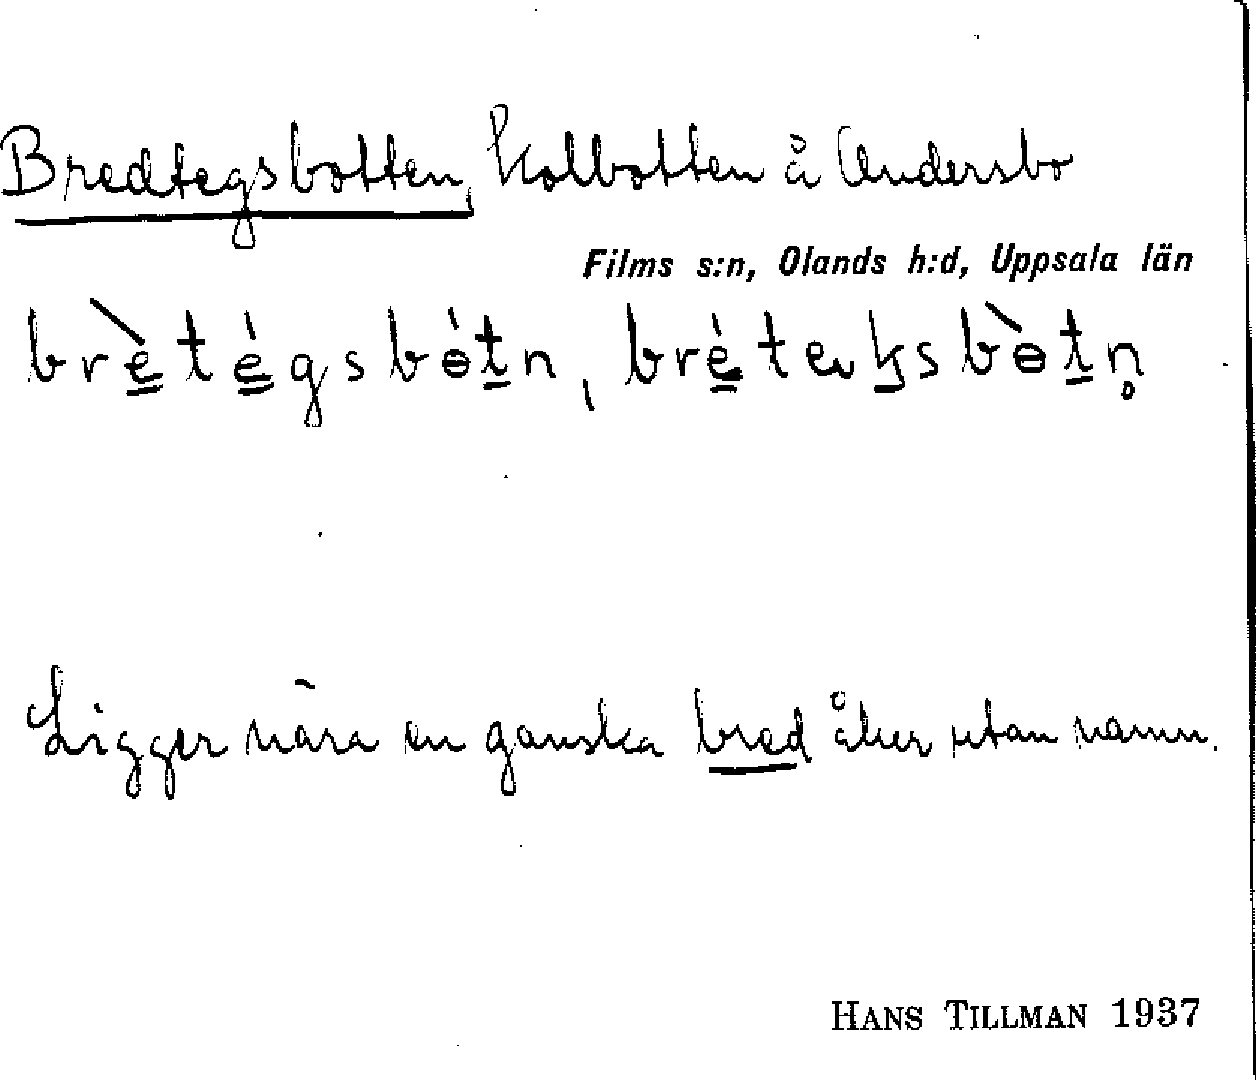 Bredtegsbotten, kolbotten å Andersbo
Films s:n, Olands h:d, Uppsala län
brè̳té̳gsbɵ́ṯn, brè̳teḵsbɵ̀ṯn̥
Ligger nära en ganska bred åker utan namn.
HANS TILLMAN 1937